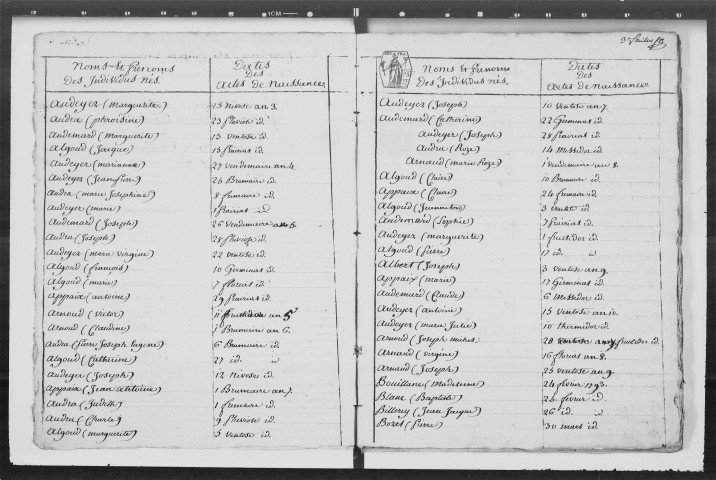 Noms & Prenoms Des Individus nés. Dates Des Actes De Naissances
Audeyer (marguerite) 15 Nivose an 3.
Audra (pheroisine) 23 Pluviose id.
Audemard (marguerite) 13 ventose id.
Algoud (Jacque) 13 flavial id.
Audeyer (marianne) 27 Vendemiaire an 4.
Audeyer (Jean fen) 26 Brumaire id.
Audra (marie Josephine) 8 frimaire id.
Audeyer (marie) 1 frairial id.
Audemard (Joseph) 26 Vendemiaire an 5
Audra (Joseph) 28 Pluviose id.
Audeyer (marie vergine) 22 ventose id.
Algoud (francois) 10 Germinal id.
Algoud (marie) 7 floreal id.
Appaix (antoine) 29 frairial id.
Arnoud (Victor) 11 fructidor an 5
Arnoud (Claudine) 1 Brumaire an 6.
Audra (pierre Joseph Eugene) 6 Brumaire id.
Algoud (Catherine) 27 id. "
Audeyer (Joseph) 12 Nivose id.
Appaix (Jean antoine) 1 Brumaire an 7.
Audra (Judith) 1 frimaire id.
Audra (Charles) 9 Pluviose id.
Algoud (marguerite) 5 Ventose id.
Noms & Prenoms Des Individus nés. Dates Des Actes De Naissances
Audeyer (Joseph) 10 Ventose an 7.
Audemard (Catherine) 22 Germinal id.
Audeyer (Joseph) 28 frairial id.
Audra (Roze) 14 Messidor id.
Arnaud (marie Roze) 1 Vendemaire an 8.
Algoud (Claire) 10 Brumaire id.
Appaix (Claire) 24 frimaire id.
Algoud (Jeanneton) 3 ventose id.
Audemard (Sophie) 7 frairial id.
Audeyer (marguerite) 1 fructidor id.
Algoud (pierre) 17 id. "
Albert (Joseph) 3 ventose an 9.
Appaix (marie) 17 Germinal id.
Audemard (Claude) 6 Messidor id.
Audeyer (antoine) 15 Ventose an 10.
Audeyer (marie Julie) 10 thermidor id.
Arnoud (Joseph michel) 28 fructidor id.
Arnaud (vergine) 16 floreal an 8.
Arnaud (Joseph) 25 ventose an 9.
Bouillane (Madeleine) 24 fevrier 1793.
Blanc (Baptiste) 26 fevrier id.
Billerey (Jean Jacque) 26 id. "
Bozet (pierre) 30 mars id.